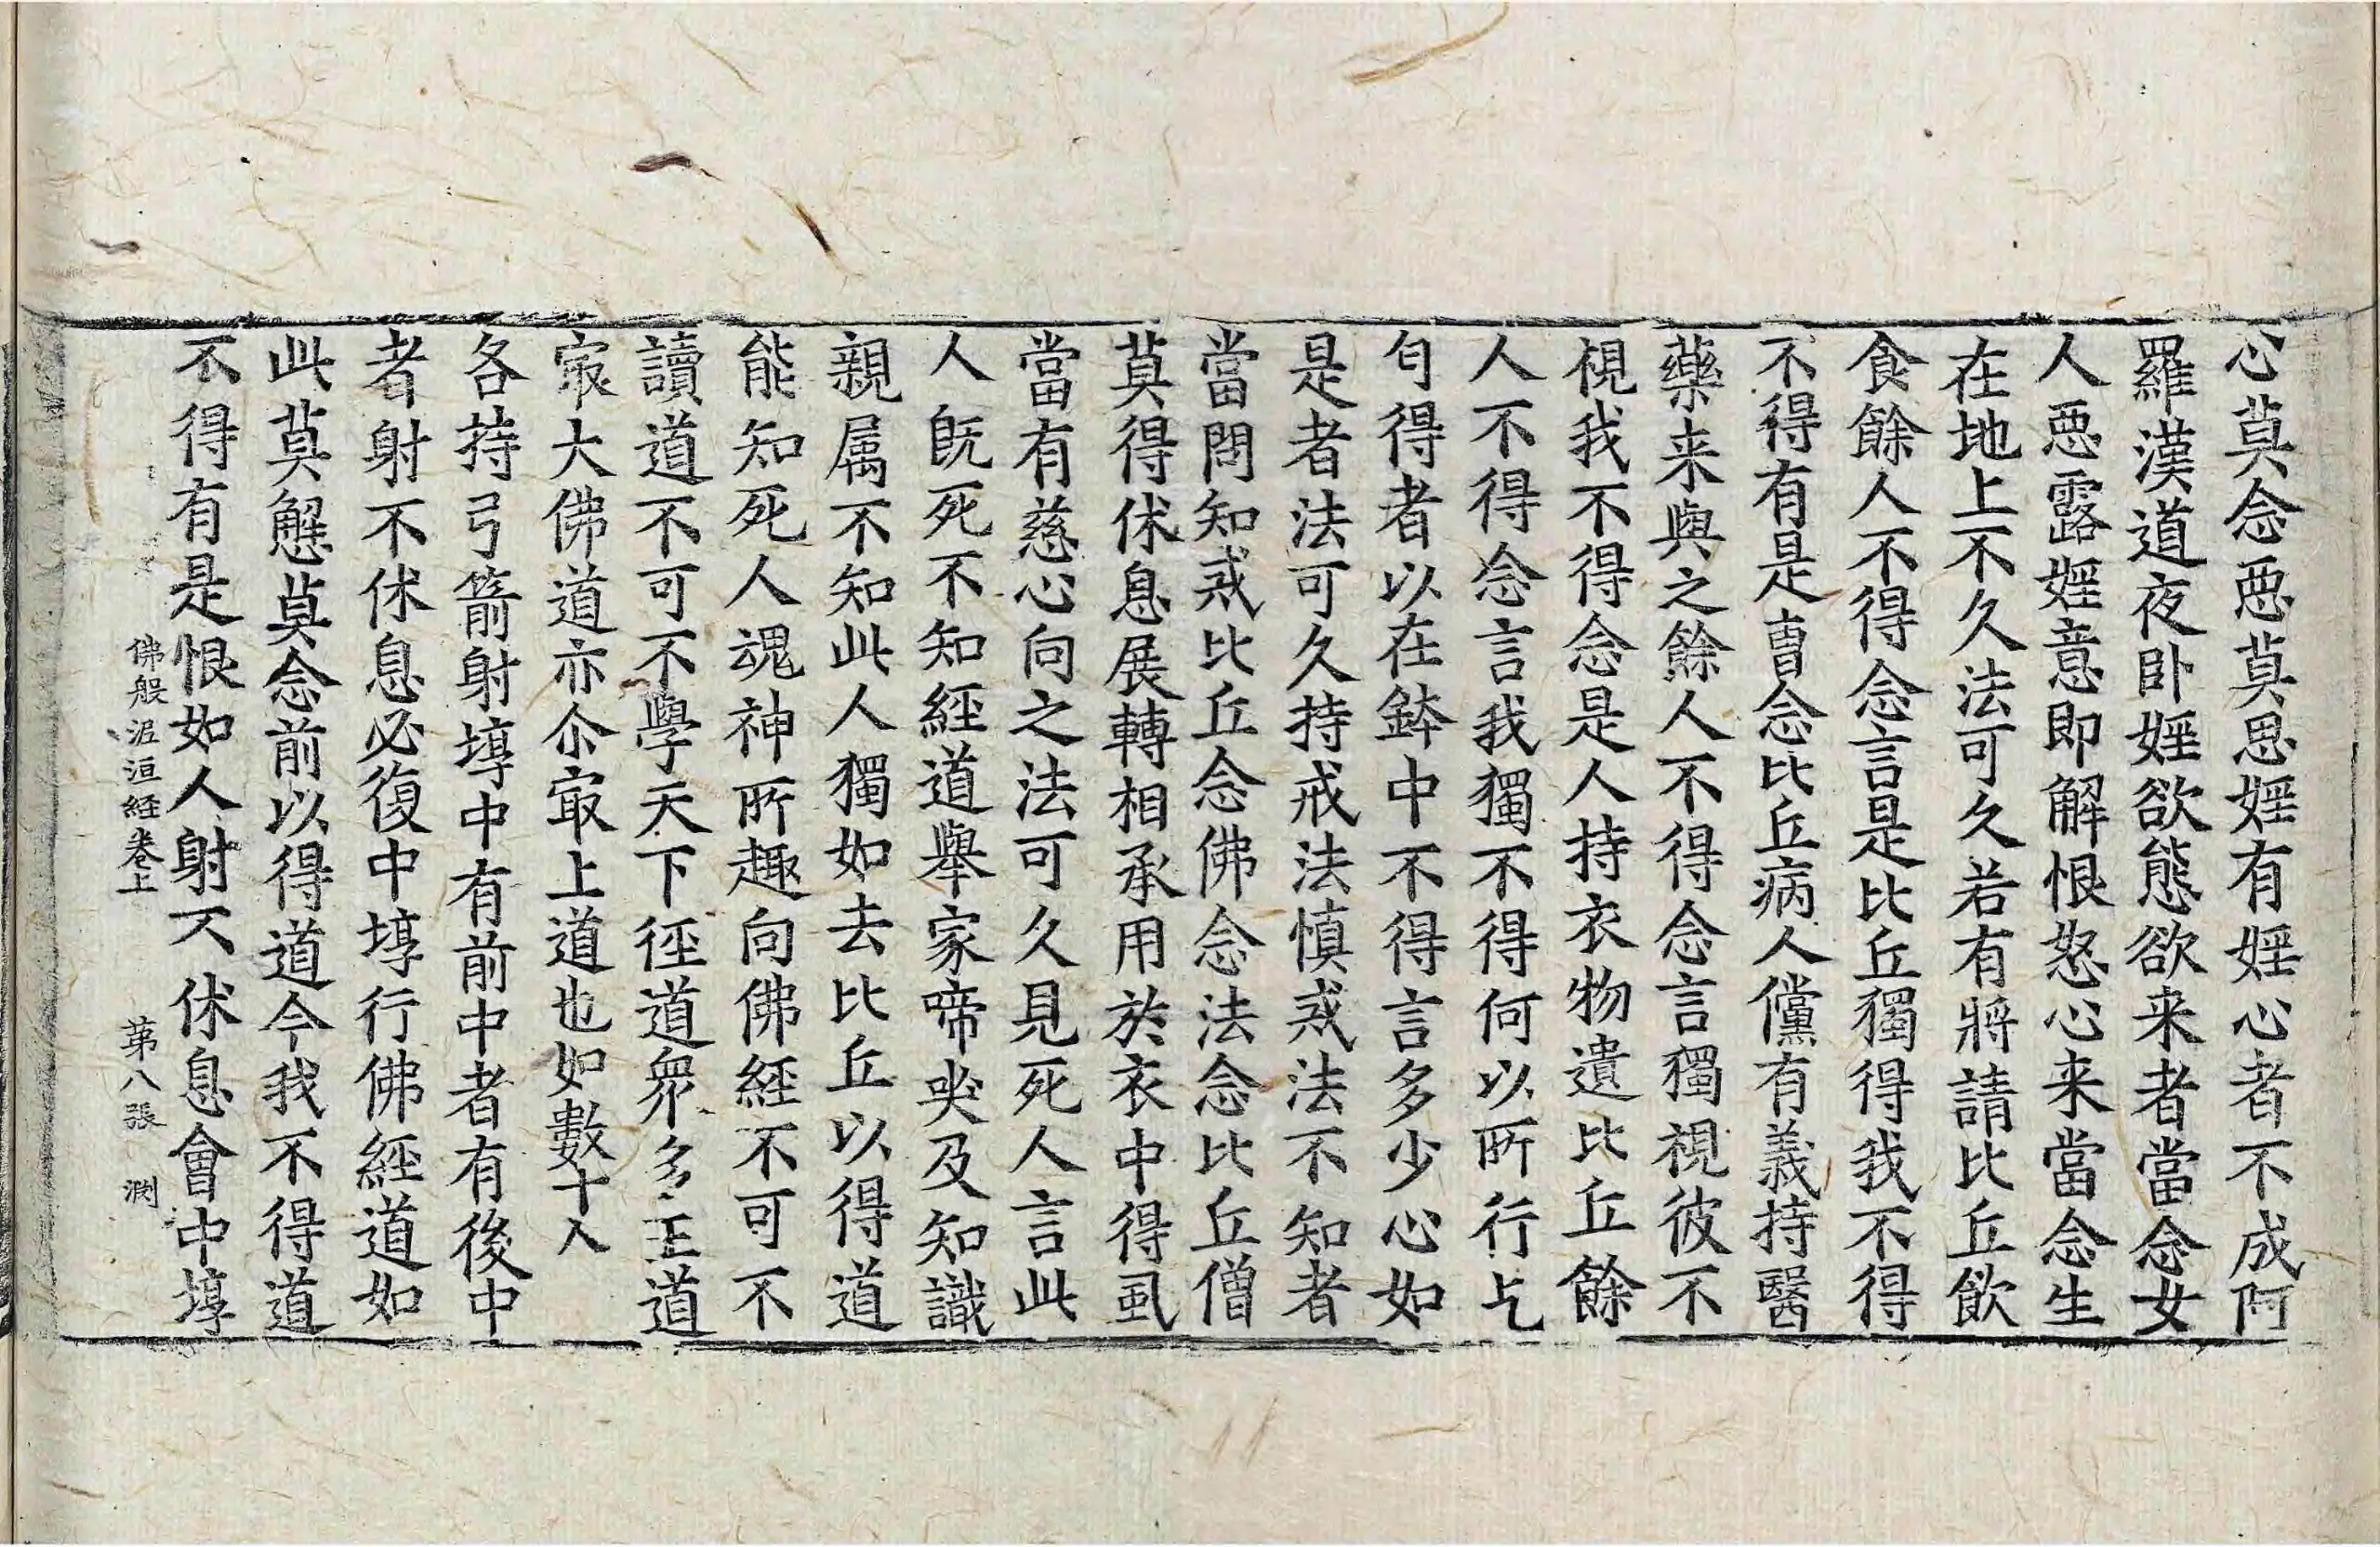 心莫念惡莫思婬有婬心者不成阿
羅漢道夜卧婬欲態欲来者當念女
人惡露婬意即解恨怒心来當念生
在地上不久法可久若有將請比丘飲
食餘人不得念言是比丘獨得我不得
不得有是曺念比丘病人儻有義持醫
藥来與之餘人不得念言獨視彼不
視我不得念是人持衣物遺比丘餘
人不得念言我獨不得何以所行乞
匂得者以在鉢中不得言多少心如
是者法可久持戒法慎戒法不知者
當問知戒比丘念佛念法念比丘僧
莫得休息展轉相承用於衣中得虱
當有慈心向之法可久見死人言此
人既死不知經道舉家啼哭及知識
親属不知此人獨如去比丘以得道
能知死人魂神所趣向佛經不可不
讀道不可不學天下徑道衆多王道
冣大佛道亦尒冣上道也如數十人
各持弓箭射埻中有前中者有後中
者射不休息必復中埻行佛經道如
此莫懈莫念前以得道今我不得道
不得有是恨如人射不休息會中埻
佛般泥洹経卷上 苐八張 渕